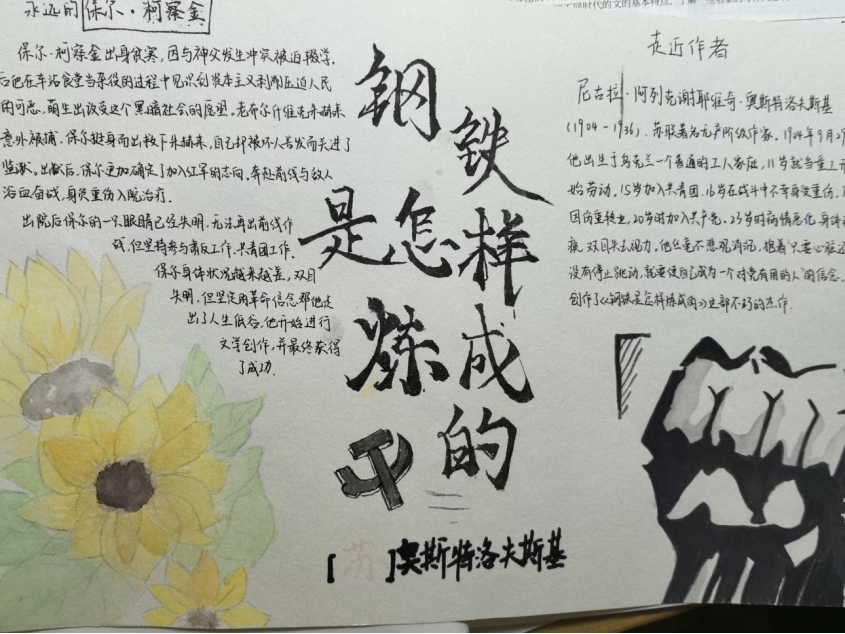 永远的保尔·柯察金
保尔·柯察金出身贫寒，因与神父发生冲突被迫辍学，
后他在车站食堂当杂役的过程中见识到资本主义剥削压迫人民
的可恶，萌生出改变这个黑暗社会的愿望。老布尔什维克朱赫来
意外被捕，保尔挺身而出救下朱赫来，自己却被坏人告发而关进了
监狱。出狱后，保尔更加确定了加入红军的志向，奔赴前线与敌人
浴血奋战，身负重伤入院治疗。
出院后保尔的一只眼睛已经失明，无法再赴前线作
战，但坚持参与肃反工作、共青团工作。
保尔身体状况越来越差，双目
失明，但坚定的革命信念帮他走
出了人生低谷，他开始进行
文学创作，并最终获得
了成功.
钢
铁
是怎样
炼成
的
[苏]奥斯特洛夫斯基
走近作者
尼古拉·阿列克谢耶维奇·奥斯特洛夫斯基
(1904-1936)，苏联著名无产阶级作家。1904年9月29
他出生于乌克兰一个普通的工人家庭，11岁就当童工开
始劳动。15岁加入共青团，16岁在战斗中不幸身受重伤，
因伤重转业，20岁时加入共产党。23岁时病情恶化，身体
痪，双目失去视力，他丝毫不悲观消沉，抱着“只要心脏还
没有停止跳动，就要使自己成为一个对党有用的人”的信念，
创作了《钢铁是怎样炼成的》这部不朽的杰作.